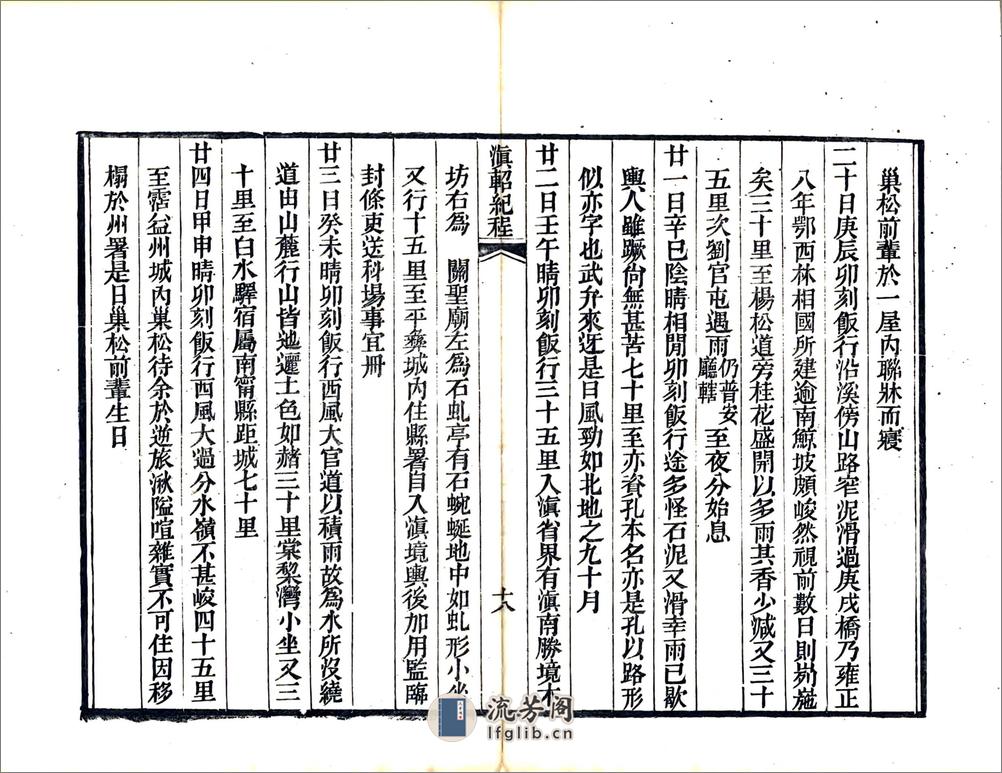 巢松前輩於一屋內聯牀而寢
二十日庚辰卯刻飯行沿溪傍山路窄泥滑過庚戌橋乃雍正
八年鄂西林相國所建逾南鯨坡頗峻然視前數日則峛崺
矣三十里至楊松道旁桂花盛開以多雨其香少減又三十
五里次劉官屯遇雨仍普安廳轄至夜分始息
廿一日辛巳陰晴相閒卯刻飯行途多怪石泥又滑幸雨已歇
輿人雖蹶尚無甚苦七十里至亦資孔本名亦是孔以路形
似亦字也武弁來迓是日風勁如北地之九十月
廿二日壬午晴卯刻飯行三十五里入滇省界有滇南勝境木
滇軺紀程
十八
坊右為 關聖廟左為石虬亭有石蜿蜒地中如虬形小坐
又行十五里至平彝城內住縣署自入滇境輿後加用監臨
封條吏送科場事宜冊
廿三日癸未晴卯刻飯行西風大官道以積雨故為水所沒繞
道由山麓行山皆地邐土色如赭三十里棠棃灣小坐又三
十里至白水驛宿屬南甯縣距城七十里
廿四日甲申晴卯刻飯行西風大過分水嶺不甚峻四十五里
至霑益州城內巢松待余於逆旅湫隘喧雜實不可住因移
榻於州署是日巢松前輩生日
流芳阁
lfglib.cn